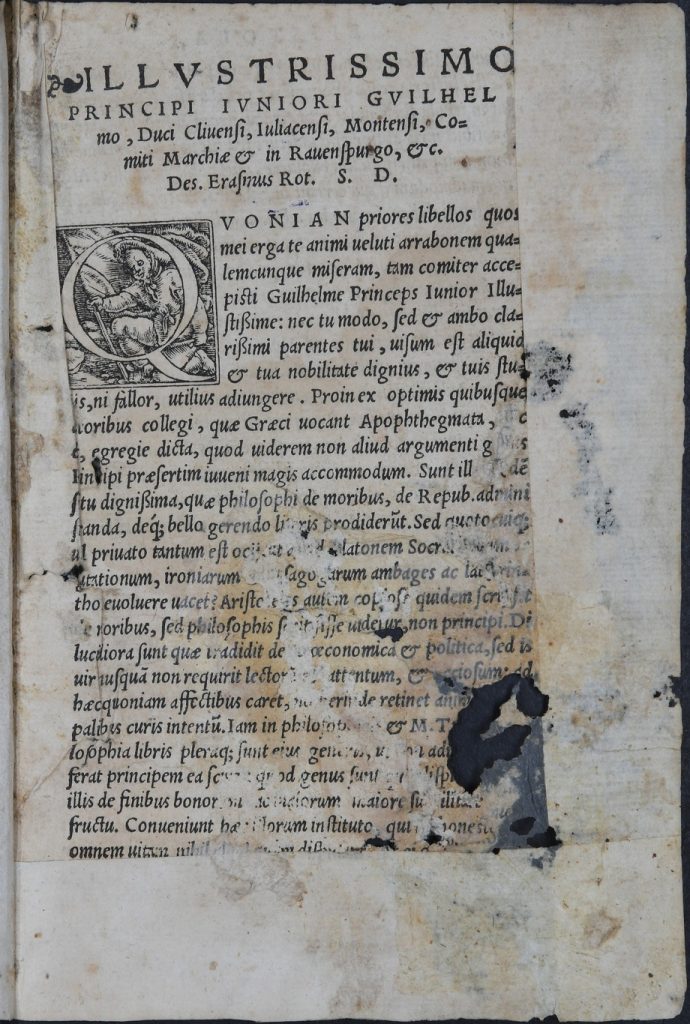 ILLVSTRISSIMO
PRINCIPI IVNIORI GVILHEL
mo, Duci Cliuensi, Iuliacensi, Montensi, Co-
miti Marchiæ & in Rauenspurgo, &c.
Des. Erasmus Rot. S. D.
QVONIAN priores libellos quos
mei erga te animi ueluti arrabonem qua-
lemcunque miseram, tam comiter acce-
pisti Guilhelme Princeps Iunior Illu-
stißime: nec tu modo, sed & ambo cla-
rißimi parentes tui, uisum est aliquid
& tua nobilitate dignius, & tuis stu-
is, ni fallor, utilius adiungere. Proin ex optimis quibusque
toribus collegi, quæ Græci uocant Apophthegmata,
egregie dicta, quod uiderem non aliud argumenti
principi præsertim iuueni magis accommodum. Sunt
stu dignißima, quæ philosophi de moribus, de Repub.
standa, deq; bello gerendo prodiderũt. Sed
ul priuato tantum est Platonem
ironiarum ambages ac
tho euoluere uacet? Aristoteles autem copiose quidem
moribus, sed philosophis uidetur, non principi. Di
lucidiora sunt quæ tradidit de œconomica & politica, sed is
uir nusquã non requirit attentum, &
hæcquoniam affectibus caret, retinet
palibus curis intentũ. Iam in & M. T
losophia libris pleraq; sunt eius generis,
ferat principem ea quod genus sunt
illis de finibus maiore
fructu. Conueniunt illorum instituto, qui
omnem uitam nihil